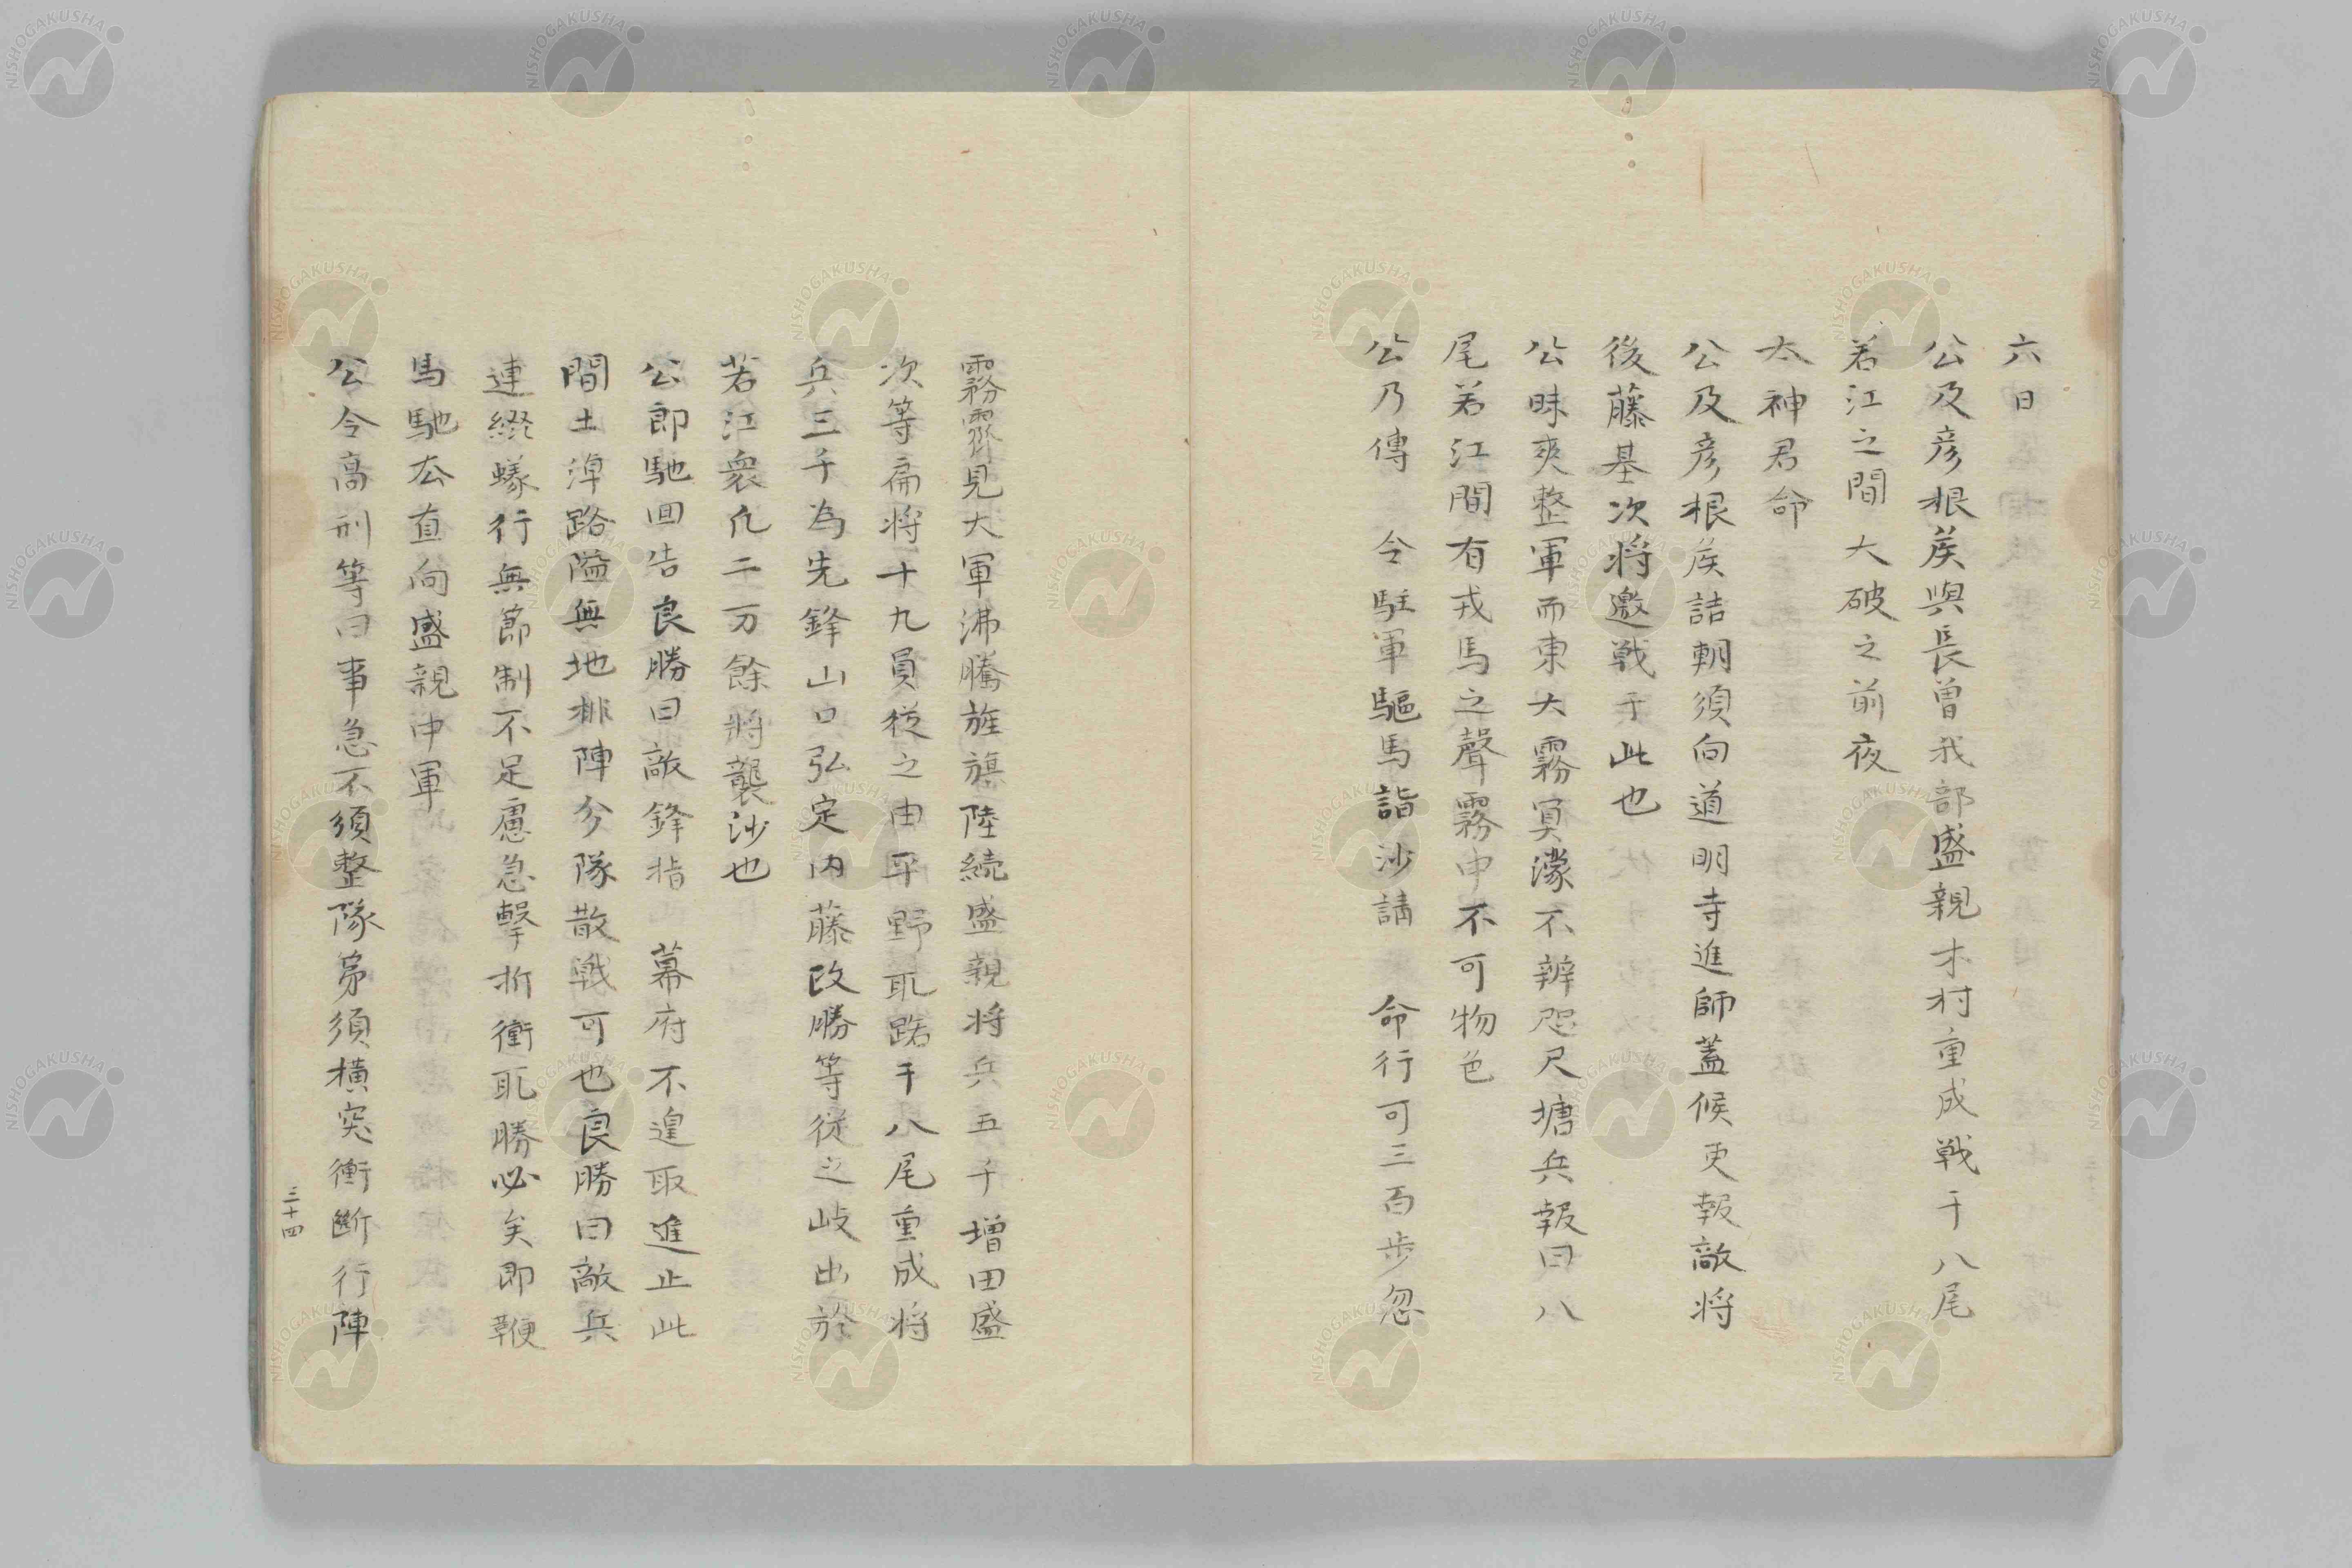 六日
公及彦根侯與長曽我部盛親木村重成戦于八尾
若江之間大破之前夜
太神君命
公及彦根侯詰朝須向道明寺進師蓋候吏報敵将
後藤基次将邀戦于此也
公昧爽整軍而東大霧冥濛不辨咫尺塘兵報曰八
尾若江間有戎馬之聲霧中不可物色
公乃傳　令駐軍驅馬詣沙請　命行可三百歩忽
霧霽見大軍沸騰旌旗陸続盛親将兵五千増田盛
次等扁将十九員從之由平野取路于八尾重成将
兵三千為先鋒山口弘定内藤政勝等従之岐出於
若江衆凢二万餘將襲沙也
公即馳回告良勝曰敵鋒指　幕府不遑取進止此
間土淖路隘無地排陣分隊散戦可也良勝曰敵兵
連綴蟻行無節制不足慮急擊折衝取勝必矣即鞭
馬馳去直向盛親中軍
公令高刑等曰事急不須整隊第須横突衝斷行陣
三十四
NISHOGAKUSHA